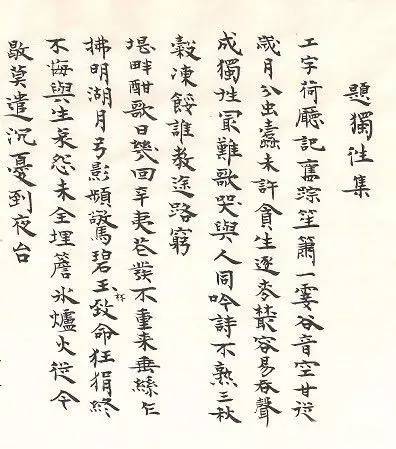 題獨往集
工字荷廳記舊踪笙簫一霎谷音空甘從
歲月分虫蠹未許貪生逐麥叢容易吞聲
成獨往最難歌哭與人同吟詩不熟三秋
穀凍餒誰教途路窮
堤畔酣歌日幾回辛夷花發不重來垂絲乍
拂明湖月弓影頻驚碧玉杯致命狂狷終
不悔與生哀怨未全埋簷冰爐火從今
歇莫遣沉憂到夜台